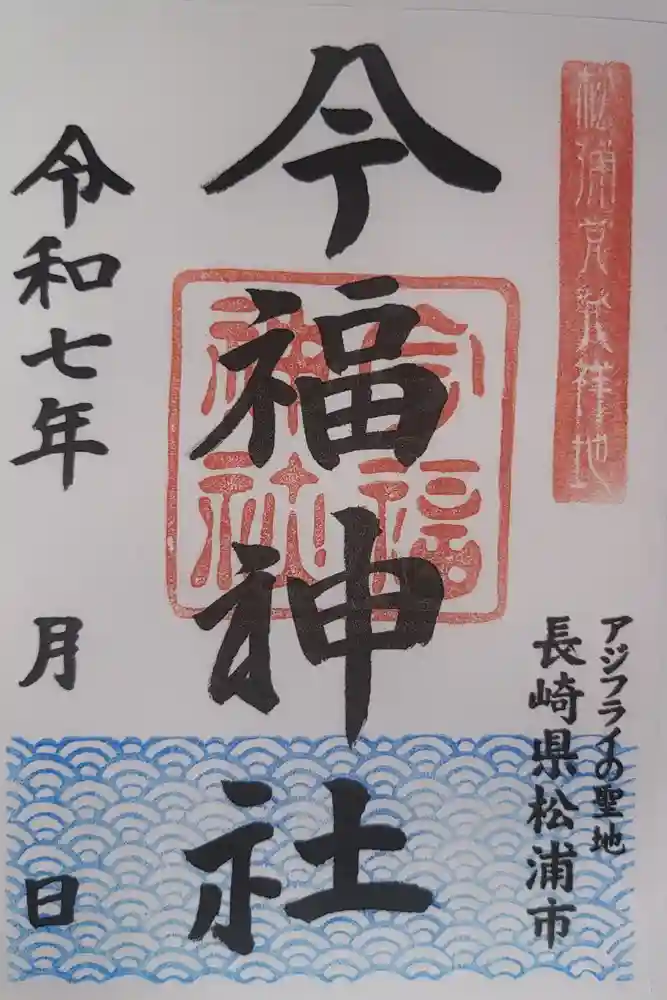 松浦党発祥地
アジフライの聖地
長崎県松浦市
今福神社
今福神社
令和七年 月 日